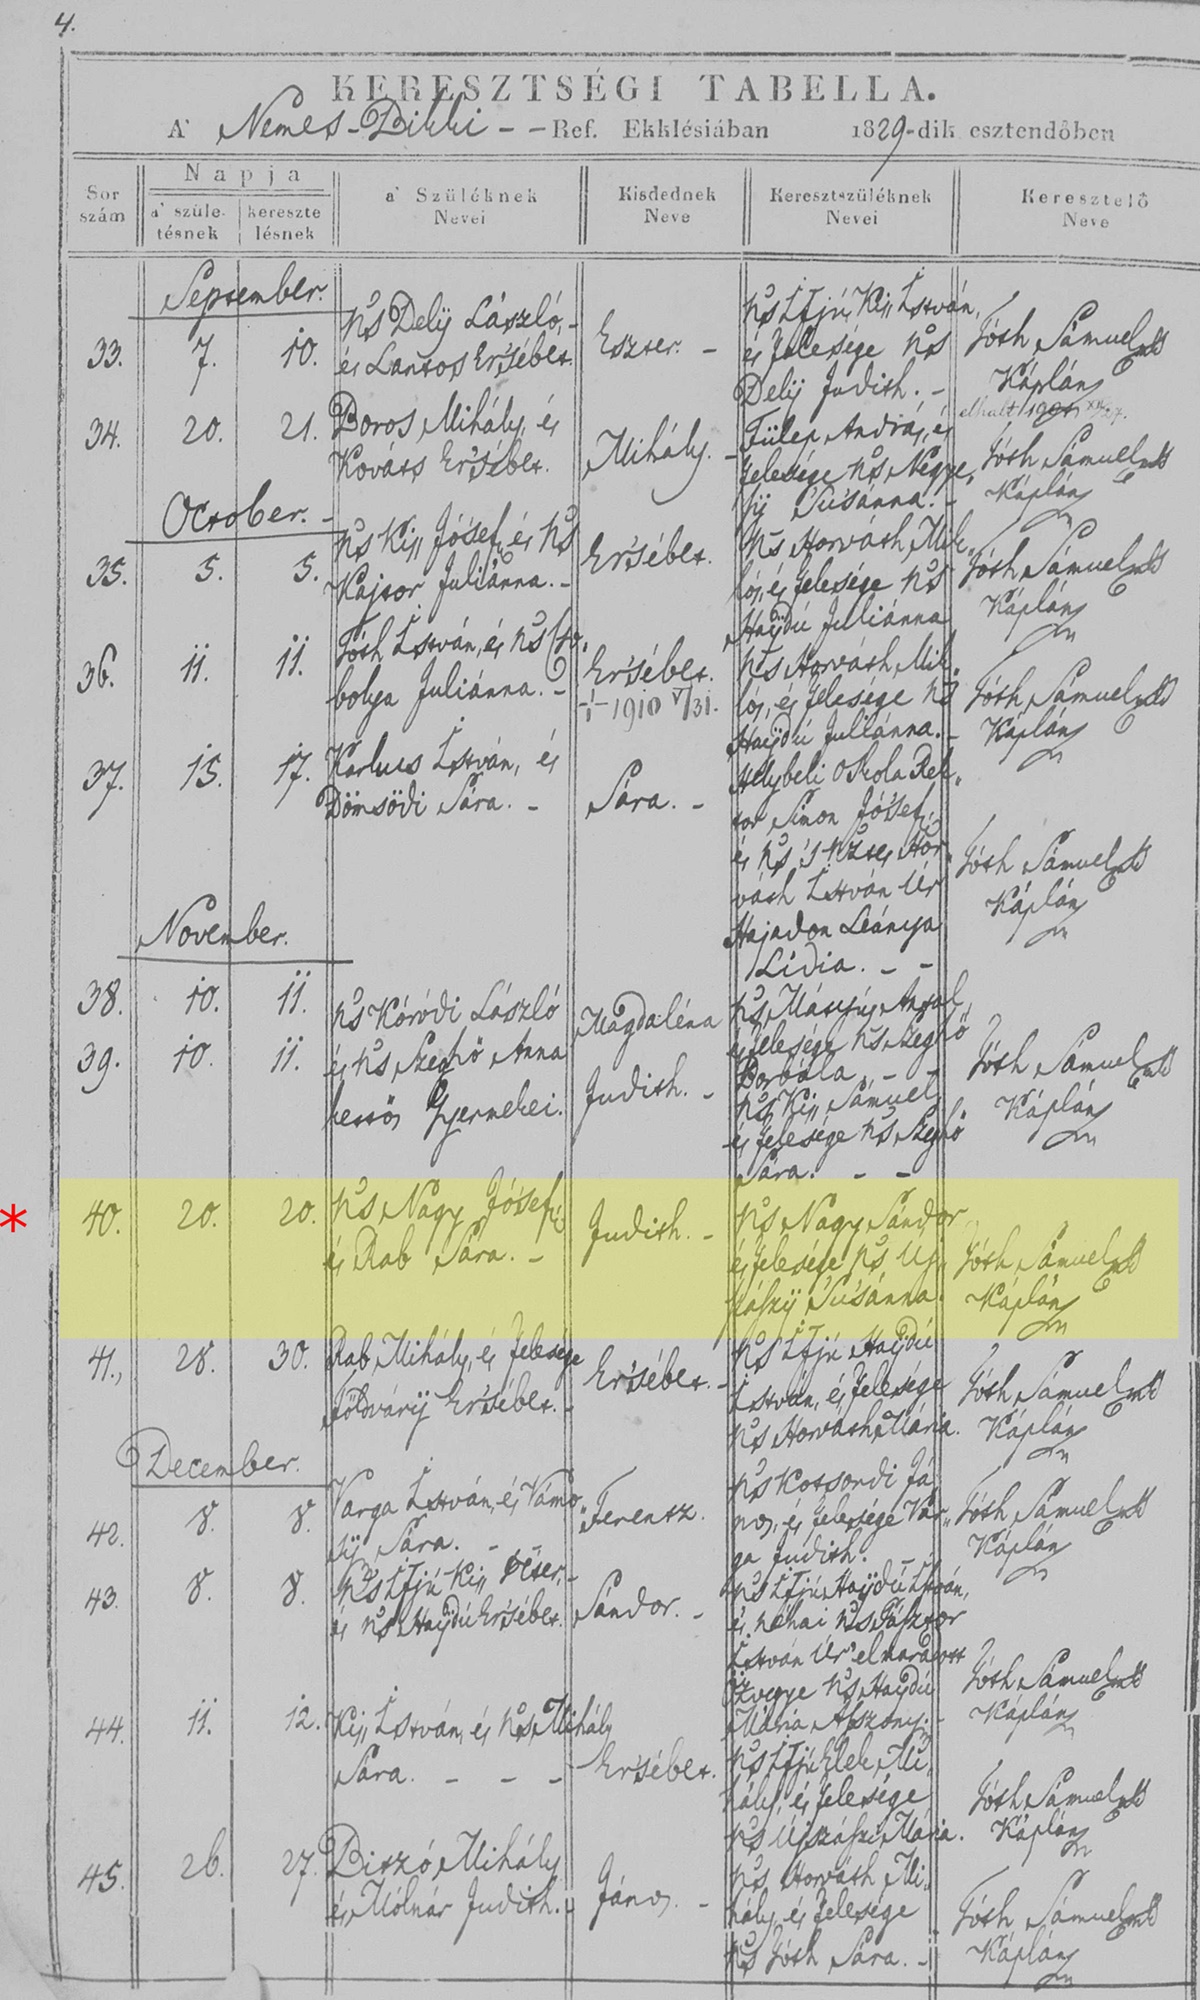 4.
KERESZTSÉGI TABELLA.
A' Nemes-Bikki - - Ref. Ekklésiában 1829-dik esztendôben
Sor szám
Napja
a' születésnek
keresztelésnek
a' Szüléknek Nevei
Kisdednek Neve
Keresztszüléknek Nevei
Keresztelô Neve
September.
33. 7. 10.
ns Delÿ László, -
és Lantos Ersébet.
Eszter. -
ns Ifjú Kiss István,
és felesége ns
Delÿ Judith. -
Tóth Sámuel mk
Káplán
34. 20. 21.
Boros Mihály, és
Kováts Ersébet.
Mihály. -
Fülep András, és
felesége ns
Susánna. -
Tóth Sámuel mk
Káplán
October. -
35. 5. 5.
ns Kiss Jósef, és ns
Kajtor Juliánna. -
Ersébet.
ns Horváth Mik,,
lós, és felesége ns
Hajdú Juliánna
Tóth Sámuel mk
Káplán
36. 11. 11.
Tóth István, és ns
bolya Juliánna. -
Ersébet.
1910 V/31.
ns Horváth Mik,,
lós, és felesége ns
Hajdú Juliánna. -
Tóth Sámuel mk
Káplán
37. 15. 17.
István, és
Dömsödi Sára. -
Sára. -
Helybeli Oskola Rek,,
tor Simon Jósef,
és ns 's Hor,,
váth István Úr
Hajadon Leánya
Lidia. - -
Tóth Sámuel mk
Káplán
November.
38. 10. 11.
39. 10. 11.
ns Kóródi László
és ns Szeghö Anna
kettös Gyermekei.
Magdaléna
Judith. -
ns Antal,
és felesége ns Szeghö
Borbála. - -
ns Kiss Sámuel,
és felesége ns Szeghö
Sára. - -
Tóth Sámuel mk
Káplán
40. 20. 20.
ns Nagy Jósef,
és Rab Sára. -
Judith. -
ns Nagy Sándor
és felesége ns Új,,
Susánna.
Tóth Sámuel mk
Káplán
41. 28. 30.
Rab Mihály, és felesége
Földvárÿ Ersébet. -
Ersébet. -
ns Ifjú Hajdú
István, és felesége
ns Horváth Mária.
Tóth Sámuel mk
Káplán
December.
42. 8. 8.
Varga István, és Vámo,,
sÿ Sára. -
Ferentz.
ns Kotsordi Já,,
nos, és felesége Var,,
ga Judith.
Tóth Sámuel mk
Káplán
43. 8. 8.
ns Ifjú Kiss Péter, -
és ns Hajdú Ersébet.
Sándor. -
ns Ifjú Hajdú István,
és néhai ns Pásztor
István Úr' elmaradott
Özvegye ns Hajdú
Mária Asszony. -
Tóth Sámuel mk
Káplán
44. 11. 12.
Kiss István, és ns Mihály
Sára. - - -
Ersébet.
ns Ifjú Elek Mi,,
hály, és felesége
ns Mária.
Tóth Sámuel mk
Káplán
45. 26. 27.
Biszó Mihály
és Mólnár Judith. -
János. -
ns Horváth Mi,,
hály, és felesége
ns Tóth Sára. -
Tóth Sámuel mk
Káplán